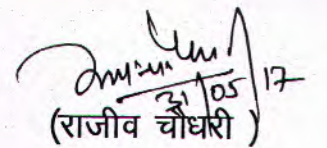 31/05/17
(राजीव चौधरी )